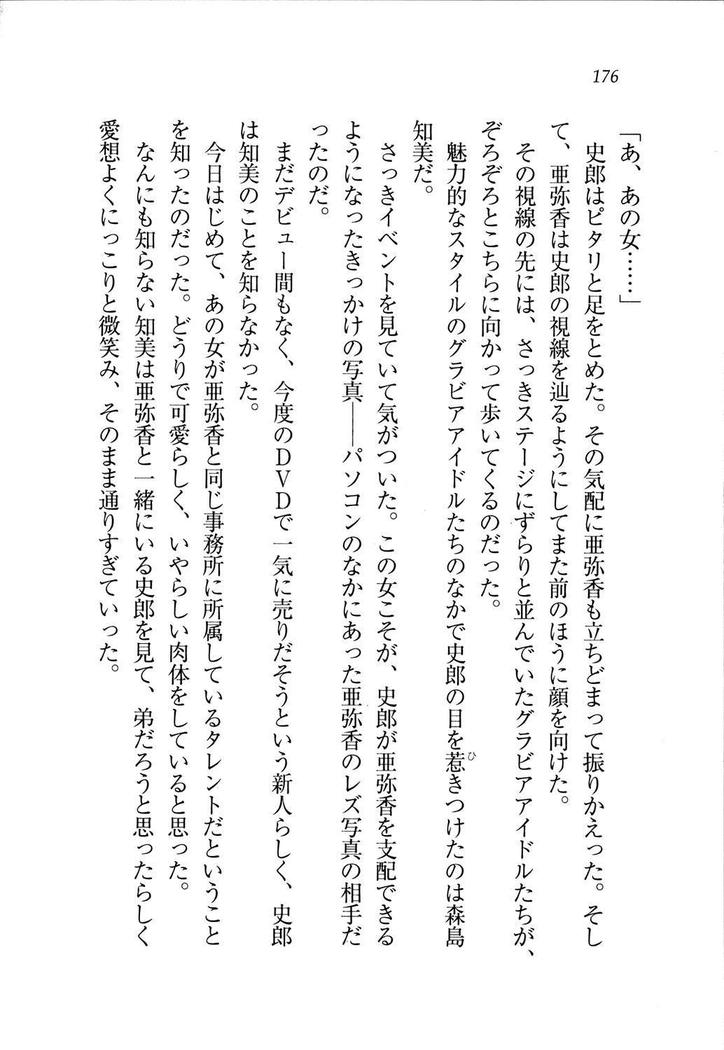 176
「あ、あの女……」
史郎はピタリと足をとめた。その気配に亜弥香も立ちどまって振りかえった。そし
て、亜弥香は史郎の視線を辿るようにしてまた前のほうに顔を向けた。
その視線の先には、さっきステージにずらりと並んでいたグラビアアイドルたちが、
ぞろぞろとこちらに向かって歩いてくるのだった。
魅力的なスタイルのグラビアアイドルたちのなかで史郎の目を惹きつけたのは森島
ひ
知美だ。
さっきイベントを見ていて気がついた。この女こそが、史郎が亜弥香を支配できる
ようになったきっかけの写真――パソコンのなかにあった亜弥香のレズ写真の相手だ
ったのだ。
まだデビュー間もなく、今度のDVDで一気に売りだそうという新人らしく、史郎
は知美のことを知らなかった。
今日はじめて、あの女が亜弥香と同じ事務所に所属しているタレントだということ
を知ったのだった。どうりで可愛らしく、いやらしい肉体をしていると思った。
なんにも知らない知美は亜弥香と一緒にいる史郎を見て、弟だろうと思ったらしく
愛想よくにっこりと微笑み、そのまま通りすぎていった。